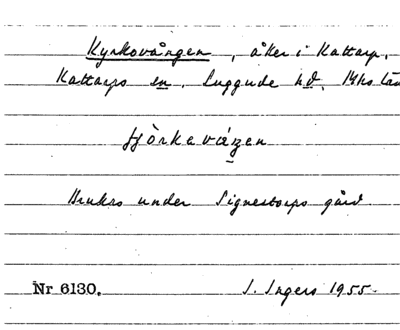 Kyrkovången, åker i Kattarp,
Kattarps sn. Luggude hd, Mhs län
Brukas under Signestorps gård
Nr 6130. I. Ingers 1955.